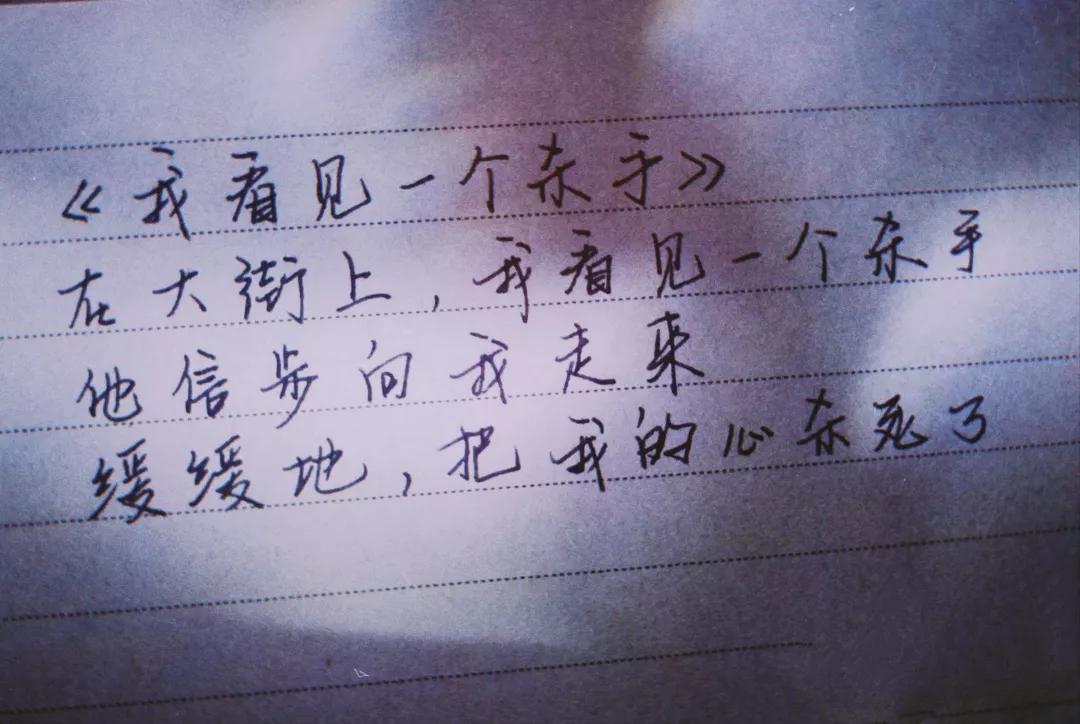 《我看见一个杀手》
在大街上,我看见一个杀手
他信步向我走来
缓缓地,把我的心杀死了